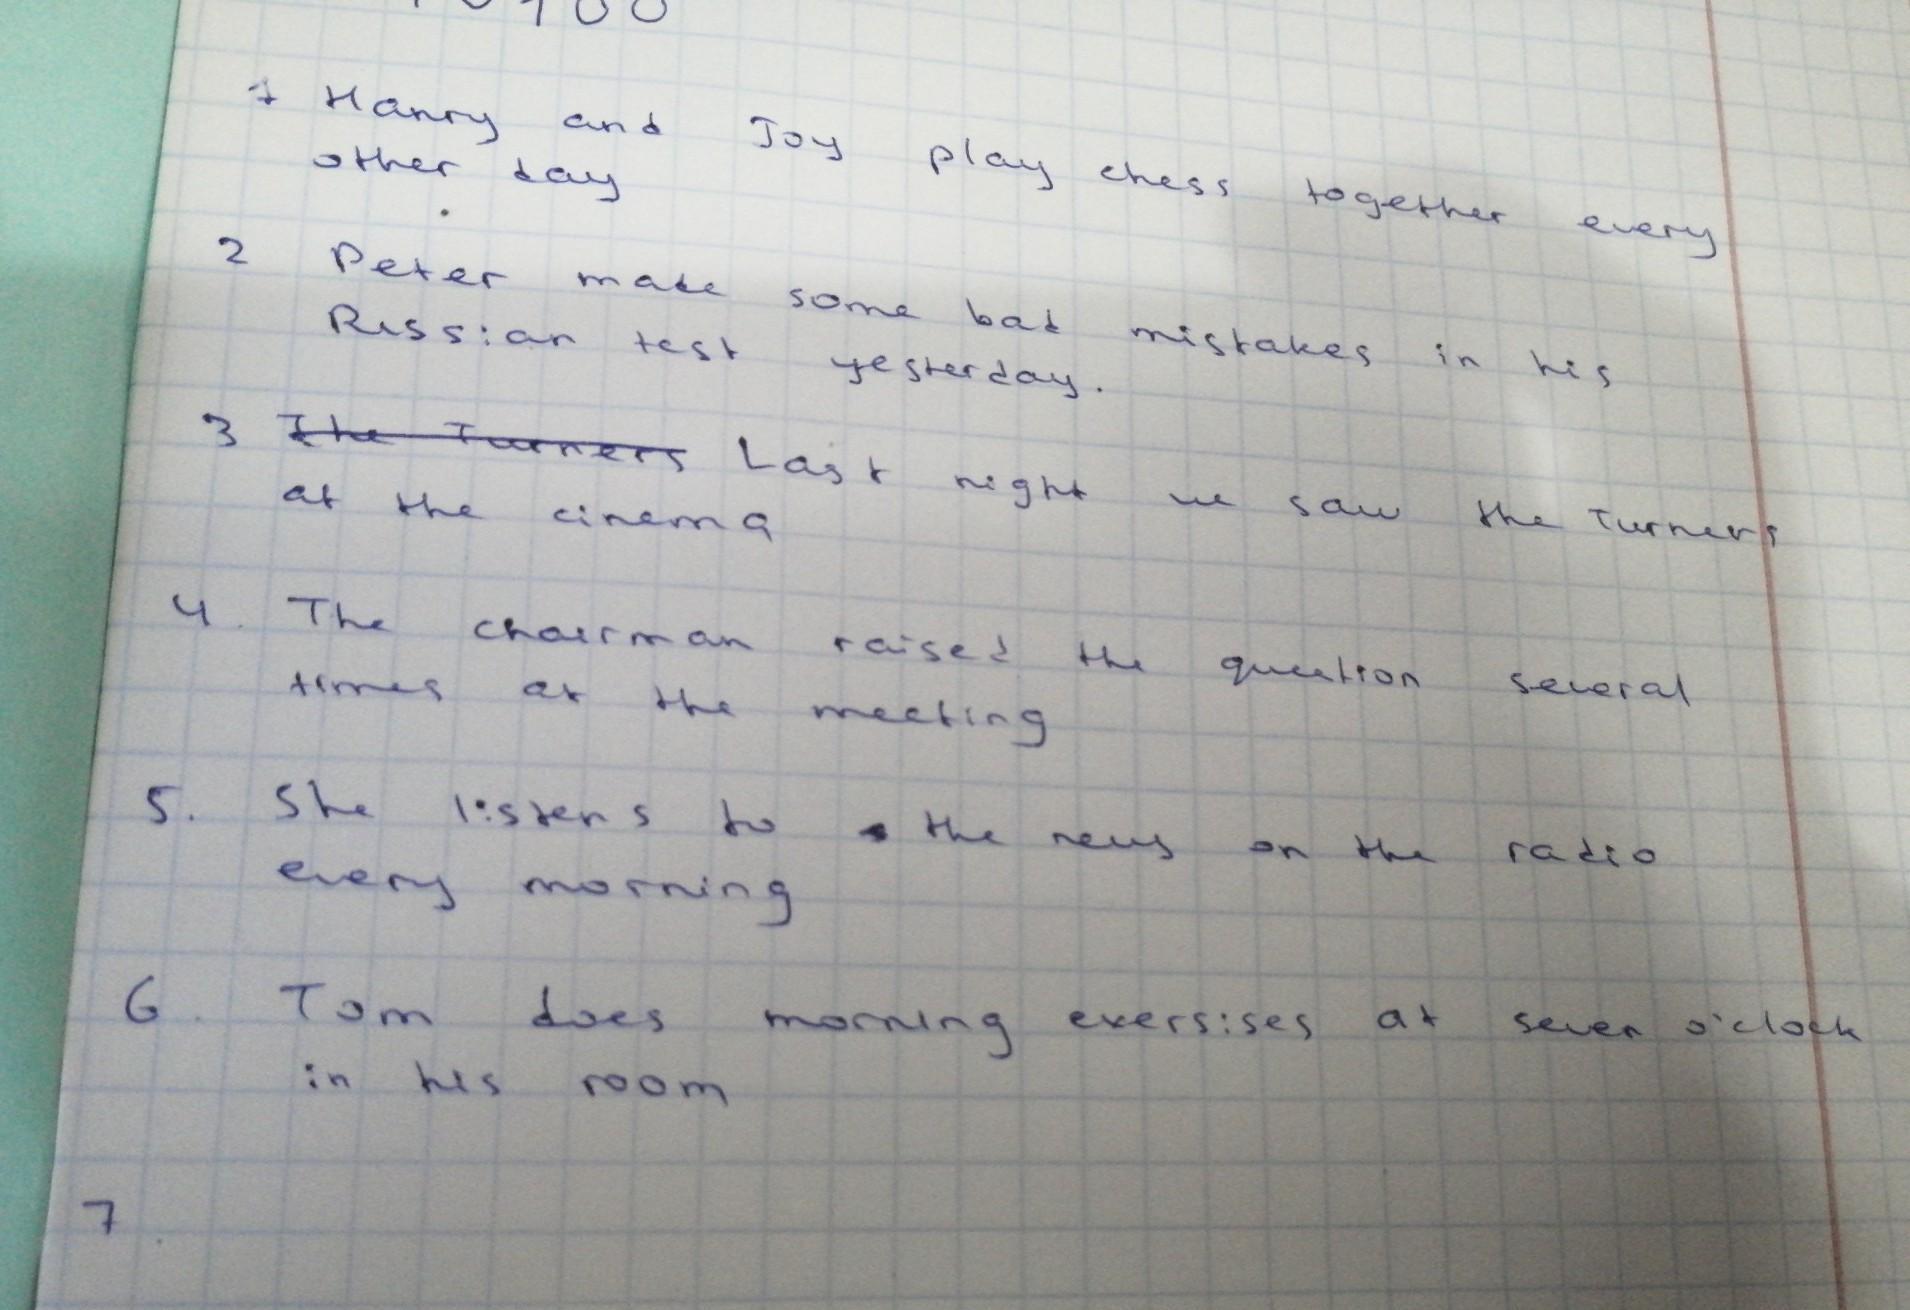 1 Hanry and Joy play chess together every
other day
2 Peter made some bad mistakes in his
Russian test yesterday.
3 The Turners Last night we saw the Turners
at the cinema
4. The chairman raised the question several
times at the meeting
5. She listens to the news on the radio
every morning
6. Tom does morning exersises at seven o'clock
in his room
7